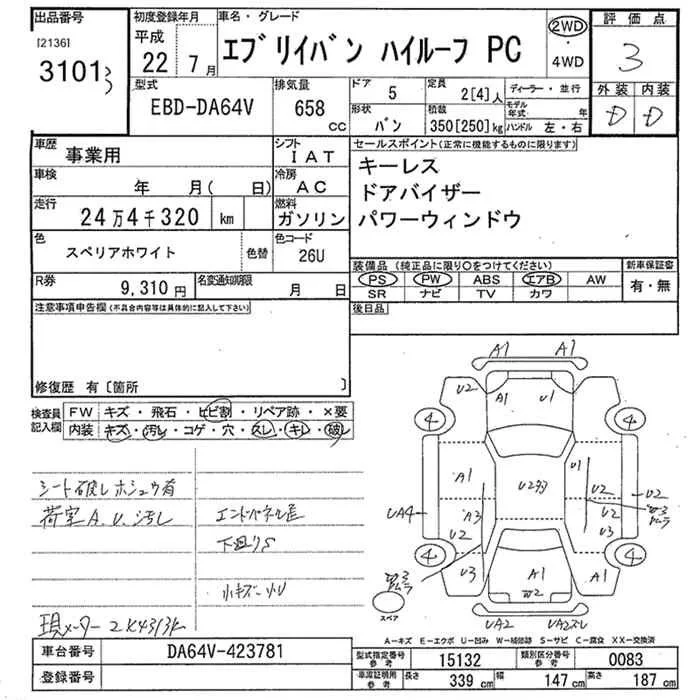 出品番号
[2136]
3101
初度登録年月
平成
22 7月
車名・グレード
エブリイバン ハイルーフ PC
2WD
・
4WD
評価点
3
外装 内装
D D
型式
EBD-DA64V
排気量
658
CC
ドア
5
形状
バン
定員
2[4]人
積載
350[250]kg
ディーラー・並行
モデル年式 年
ハンドル 左・右
車歴
事業用
シフト
IAT
車検
年 月( 日)
冷房
AC
走行
24万4千320 km
燃料
ガソリン
色
スペリアホワイト
色替
色コード
26U
R券
9,310円
名変通知期限
月 日
セールスポイント(正常に機能するものに限ります)
キーレス
ドアバイザー
パワーウィンドウ
装備品(純正品に限り○をつけてください)
PS PW ABS エアB AW
SR ナビ TV カワ
新車保証書
有・無
後日品
注意事項申告欄(不具合内容等は具体的に記入して下さい)
修復歴 有〔箇所 〕
検査員
記入欄
FW キズ・飛石・ヒビ割・リペア跡・×要
内装 キズ・汚レ・コゲ・穴・スレ・キレ・破レ
シート破レ ホシュウ有
荷室A.U.汚レ
エンドパネル
下回りS
小キズ 小U
現メーター
A1 A1
U2 A1 U1
4 4
A1 U1
U2
UA4 A3 U2 U2
U2 U3
4 4
U3 A1 A1
W2
UA2 UA2スレ
スペア
A-キズ E-エクボ U-凹み W-補修跡 S-サビ C-腐食 XX-交換済
車台番号 DA64V-423781
登録番号
型式指定番号 参考 15132
類別区分番号 参考 0083
車庫証明用 参考 長さ 339cm 幅 147cm 高さ 187cm